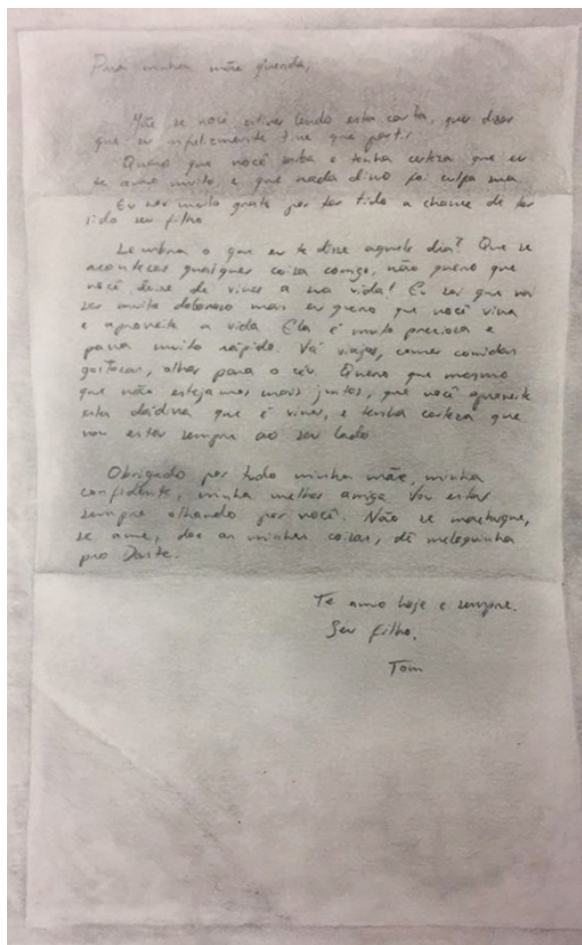 Para minha mãe querida,
Mãe se você estiver lendo esta carta, quer dizer
que eu infelizmente tive que partir.
Quero que você saiba e tenha certeza que eu
te amo muito, e que nada disso foi culpa sua.
Eu sou muito grato por ter tido a chance de ter
sido seu filho
Lembra o que eu te disse aquele dia? Que se
acontecer qualquer coisa comigo, não quero que
você deixe de viver a sua vida! Eu sei que vai
ser muito doloroso mais eu quero que você viva
e aproveite a vida. Ela é muito preciosa e
passa muito rápido. Vá viajar, comer comidas
gostosas, olhar para o céu. Quero que mesmo
que não estejamos mais juntos, que você aproveite
esta dádiva que é viver, e tenha certeza que
vou estar sempre ao seu lado
Obrigado por tudo minha mãe, minha
confidente, minha melhor amiga. Vou estar
sempre olhando por você. Não se machuque,
se ame, doe as minhas coisas, dê meleguinha
pro Dante.
Te amo hoje e sempre.
Seu filho,
Tom